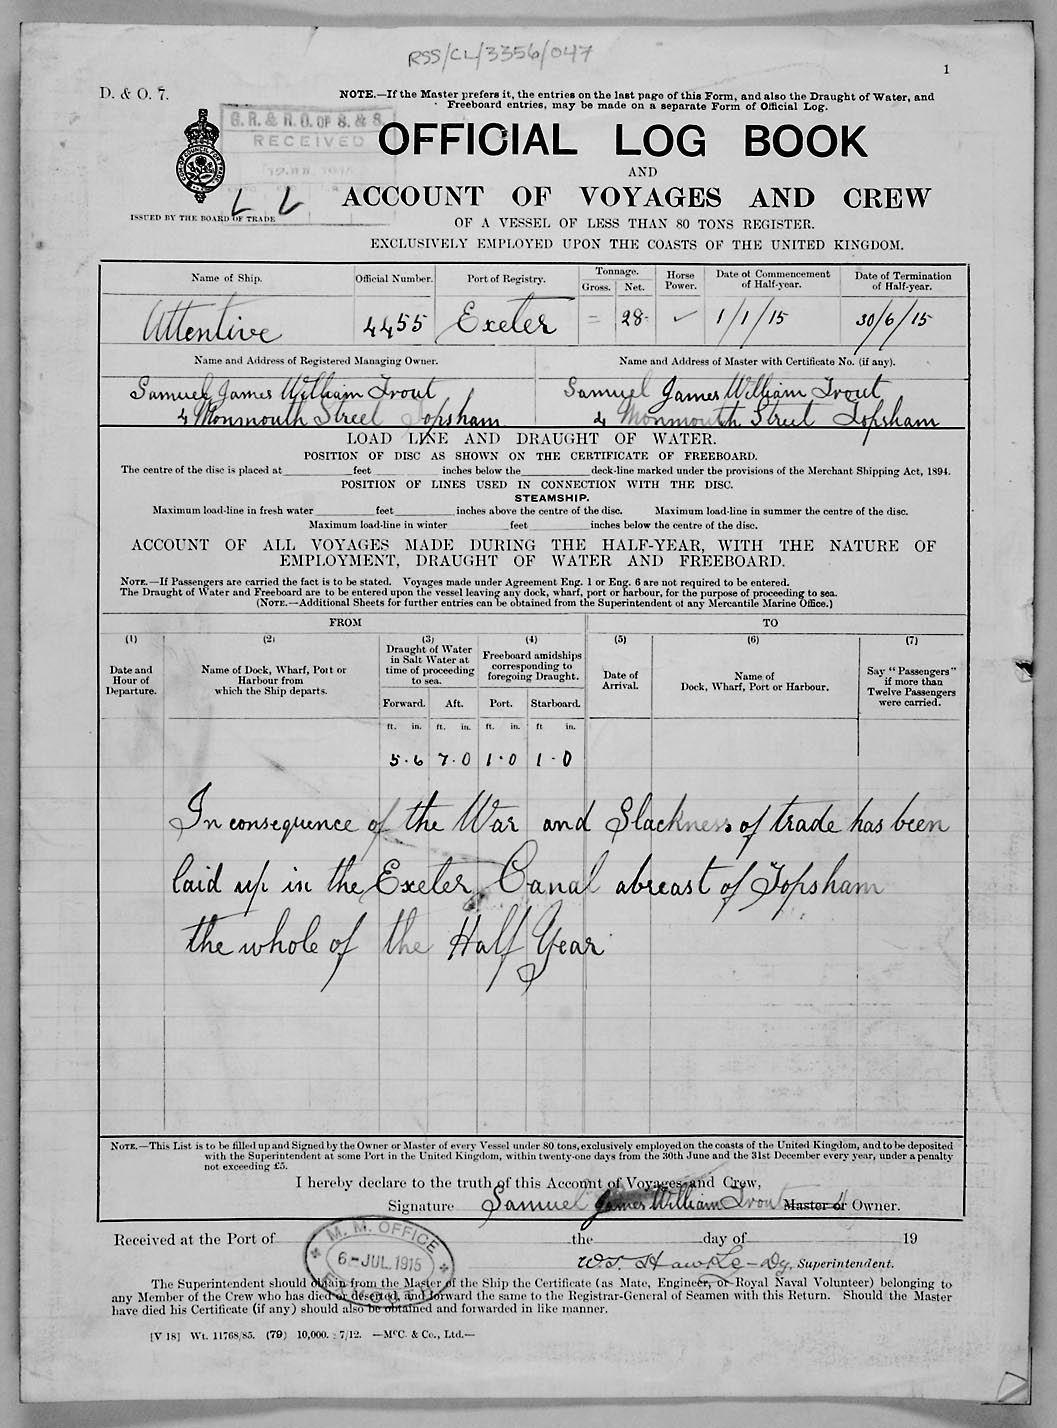 RSS/CL/3356/047
1
D. & O. 7.
NOTE.—If the Master prefers it, the entries on the last page of this Form, and also the Draught of Water, and
Freeboard entries, may be made on a separate Form of Official Log.
G.R. & R.O. OF S. & S.
RECEIVED
OFFICIAL LOG BOOK
AND
ACCOUNT OF VOYAGES AND CREW
ISSUED BY THE BOARD OF TRADE
OF A VESSEL OF LESS THAN 80 TONS REGISTER.
EXCLUSIVELY EMPLOYED UPON THE COASTS OF THE UNITED KINGDOM.
Name of Ship. Official Number. Port of Registry. Tonnage. Gross. Net. Horse Power. Date of Commencement of Half-year. Date of Termination of Half-year.
Attentive 4455 Exeter = 28 ✓ 1/1/15 30/6/15
Name and Address of Registered Managing Owner. Name and Address of Master with Certificate No. (if any).
Samuel James William Trout Samuel James William Trout
4 Monmouth Street Topsham 4 Monmouth Street Topsham
LOAD LINE AND DRAUGHT OF WATER.
POSITION OF DISC AS SHOWN ON THE CERTIFICATE OF FREEBOARD.
The centre of the disc is placed at feet inches below the deck-line marked under the provisions of the Merchant Shipping Act, 1894.
POSITION OF LINES USED IN CONNECTION WITH THE DISC.
STEAMSHIP.
Maximum load-line in fresh water feet inches above the centre of the disc. Maximum load-line in summer the centre of the disc.
Maximum load-line in winter feet inches below the centre of the disc.
ACCOUNT OF ALL VOYAGES MADE DURING THE HALF-YEAR, WITH THE NATURE OF
EMPLOYMENT, DRAUGHT OF WATER AND FREEBOARD.
NOTE.—If Passengers are carried the fact is to be stated. Voyages made under Agreement Eng. 1 or Eng. 6 are not required to be entered.
The Draught of Water and Freeboard are to be entered upon the vessel leaving any dock, wharf, port or harbour, for the purpose of proceeding to sea.
(NOTE.—Additional Sheets for further entries can be obtained from the Superintendent of any Mercantile Marine Office.)
FROM TO
(1) (2) (3) (4) (5) (6) (7)
Date and Hour of Departure.
Name of Dock, Wharf, Port or Harbour from which the Ship departs.
Draught of Water in Salt Water at time of proceeding to sea.
Freeboard amidships corresponding to foregoing Draught.
Date of Arrival.
Name of Dock, Wharf, Port or Harbour.
Say "Passengers" if more than Twelve Passengers were carried.
Forward. Aft. Port. Starboard.
ft. in. ft. in. ft. in. ft in.
5·6 7·0 1·0 1·0
In consequence of the War and Slackness of trade has been
laid up in the Exeter Canal abreast of Topsham
the whole of the Half Year
NOTE.—This List is to be filled up and Signed by the Owner or Master of every Vessel under 80 tons, exclusively employed on the coasts of the United Kingdom, and to be deposited
with the Superintendent at some Port in the United Kingdom, within twenty-one days from the 30th June and the 31st December every year, under a penalty
not exceeding £5.
I hereby declare to the truth of this Account of Voyages and Crew,
Signature Samuel James William Trout Master or Owner.
Received at the Port of the day of 19
M. M. OFFICE
6-JUL.1915
Superintendent.
The Superintendent should obtain from the Master of the Ship the Certificate (as Mate, Engineer, or Royal Naval Volunteer) belonging to
any Member of the Crew who has died or deserted, and forward the same to the Registrar-General of Seamen with this Return. Should the Master
have died his Certificate (if any) should also be obtained and forwarded in like manner.
[V 18] Wt. 11768/85. (79) 10,000. 7/12. —McC. & Co., Ltd.—